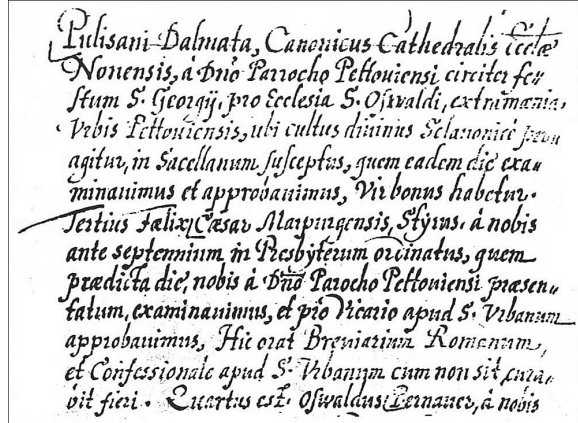 Pulisani Dalmata, Canonicus Cathedralis Eccłæ
Nonensis, à Dn̄o Parocho Pettouiensi circiter fe=
stum S. Georgij, pro Ecclesia S. Oswaldi, extra mænia
Vrbis Pettouiensis, ubi cultus diuinus Sclauonicè
agitur, in Sacellanum susceptus, quem eadem die exa=
minauimus et approbauimus, Vir bonus habetur.
Tertius Fælix Cæsar Marpurgensis, Styrus. à nobis
ante septennium in Presbyterum ordinatus, quem
prædicta die, nobis à Dn̄o Parocho Pettouiensi præsen=
tatum, examinauimus, et pro Vicario apud S. Vrbanum
approbauimus, Hic orat Breuiarium Romanum,
et Confessionale apud S. Vrbanum cum non sit, cura=
bit fieri. Quartus est. Oswaldus Pernauer, à nobis